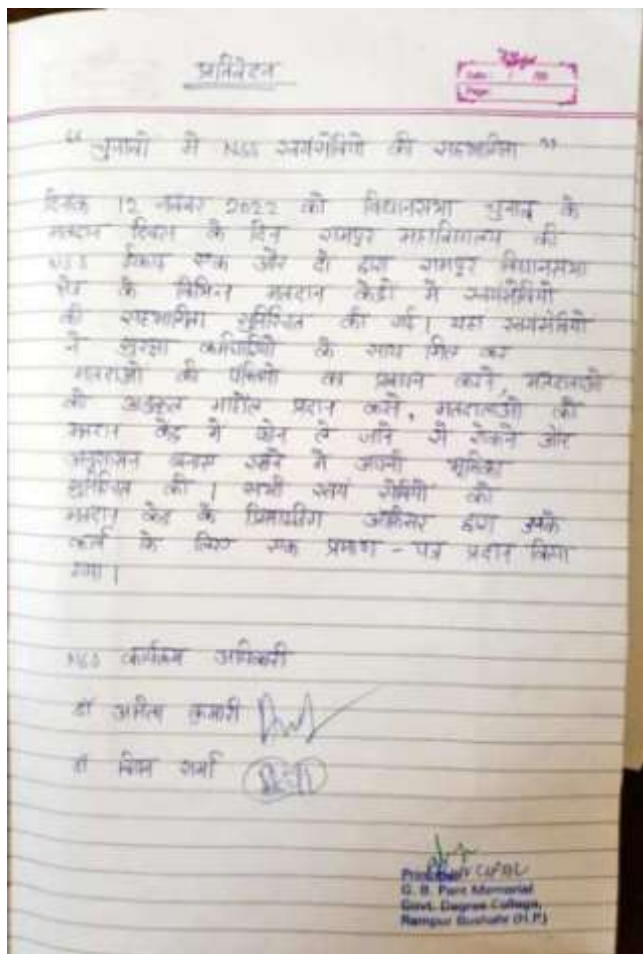 प्रतिवेदन
Date / /20
Page
“ चुनावो मे NSS स्वयंसेवियो की सहभागिता ”
दिनांक 12 नवंबर 2022 को विधानसभा चुनाव के
मतदान दिवस के दिन रामपुर महाविद्यालय की
NSS ईकाई एक और दो द्वारा रामपुर विधानसभा
क्षेत्र के विभिन्न मतदान केंद्रो मे स्वयंसेवियो
की सहभागिता सुनिश्चित की गई। यहा स्वयंसेवियो
ने सुरक्षा कर्मचारियो के साथ मिल कर
मतदाताओ की पंक्तियो का प्रबंधन करने, मतदाताओ
को अनुकूल माहौल प्रदान करने, मतदाताओ को
मतदान केंद्र मे फोन ले जाने से रोकने और
अनुशासन बनाए रखने मे अपनी भूमिका
सुनिश्चित की। सभी स्वयं सेवियो को
मतदान केंद्र के प्रिसाइडिंग ऑफिसर द्वारा उनके
कार्य के लिए एक प्रमाण - पत्र प्रदान किया
गया।
NSS कार्यक्रम अधिकारी
डॉ कुमारी
डॉ शर्मा
Principal
G. B. Pant Memorial
Govt. Degree College,
Rampur Bushahr (H.P.)